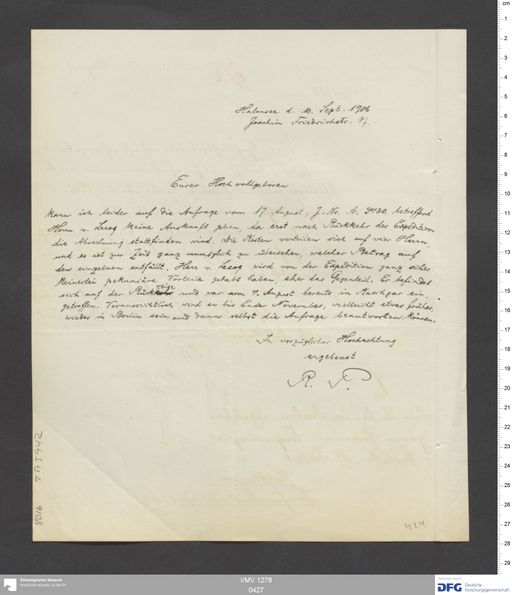 Halensee d. 10. Sept. 1906
Joachim Friedrichstr. 47.
Eurer Hochwohlgeboren
kann ich leider auf die Anfrage vom 17. August, J.-No. A. 3730. betreffend
Herrn v. Lecoq keine Auskunft geben, da erst nach Rückkehr der Expedition
die Abrechnung stattfinden wird. Die Kosten verteilen sich auf vier Herren,
und es ist zur Zeit ganz unmöglich zu übersehen, welcher Betrag auf
den einzelnen entfällt. Herr v. Lecoq wird von der Expedition ganz sicher
keinerlei pekuniäre Vorteile gehabt haben, eher das Gegenteil. Er befindet
sich auf der Rückreise und war am 4. August bereits in Kaschgar ein-
getroffen. Voraussichtlich wird er bis Ende November, vielleicht etwas früher,
wieder in Berlin sein und dann selbst die Anfrage beantworten können.
In vorzüglicher Hochachtung
ergebenst
R. P.
424
I/MV 1276
0427
Ethnologisches Museum
Staatliche Museen zu Berlin
DFG Deutsche
Forschungsgemeinschaft